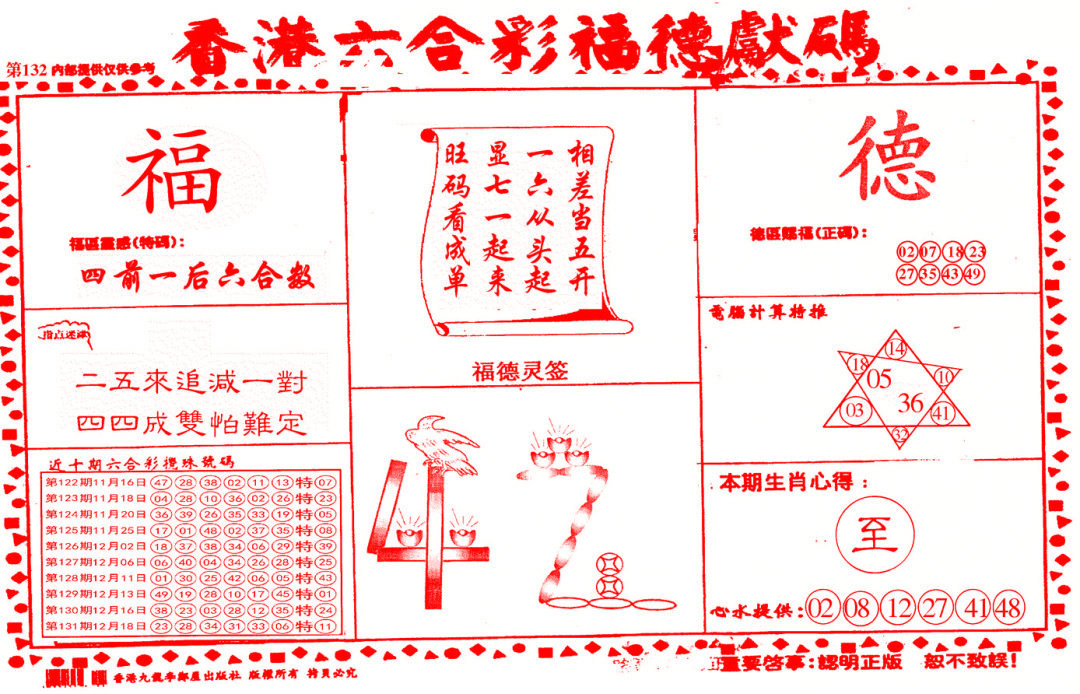 香港六合彩福德獻碼
第132 内部提供仅供参考
福
福區靈感(特碼):
四前一后六合数
指点迷津
二五來追減一對
四四成雙怕難定
近十期六合彩攪珠號碼
第122期11月16日 47 28 38 02 11 13 特 07
第123期11月18日 04 28 10 36 02 26 特 23
第124期11月20日 36 39 26 35 33 19 特 05
第125期11月25日 17 01 48 02 37 35 特 08
第126期12月02日 18 37 38 34 06 29 特 39
第127期12月06日 06 40 04 34 26 28 特 25
第128期12月11日 01 30 25 42 06 05 特 43
第129期12月13日 49 19 28 10 17 45 特 01
第130期12月16日 38 23 03 28 12 35 特 24
第131期12月18日 23 28 34 31 33 06 特 11
相差当五开
一六从头起
显七一起来
旺码看成单
福德灵签
德
德區賜福(正碼):
02 07 18 23
27 35 43 49
電腦計算特推
14
18 10
05
36
03 41
32
本期生肖心得:
至
心水提供: 02 08 12 27 41 48
香港九龍李鄭屋出版社 版權所有 拷貝必究
重要啓事:認明正版 恕不致誤!